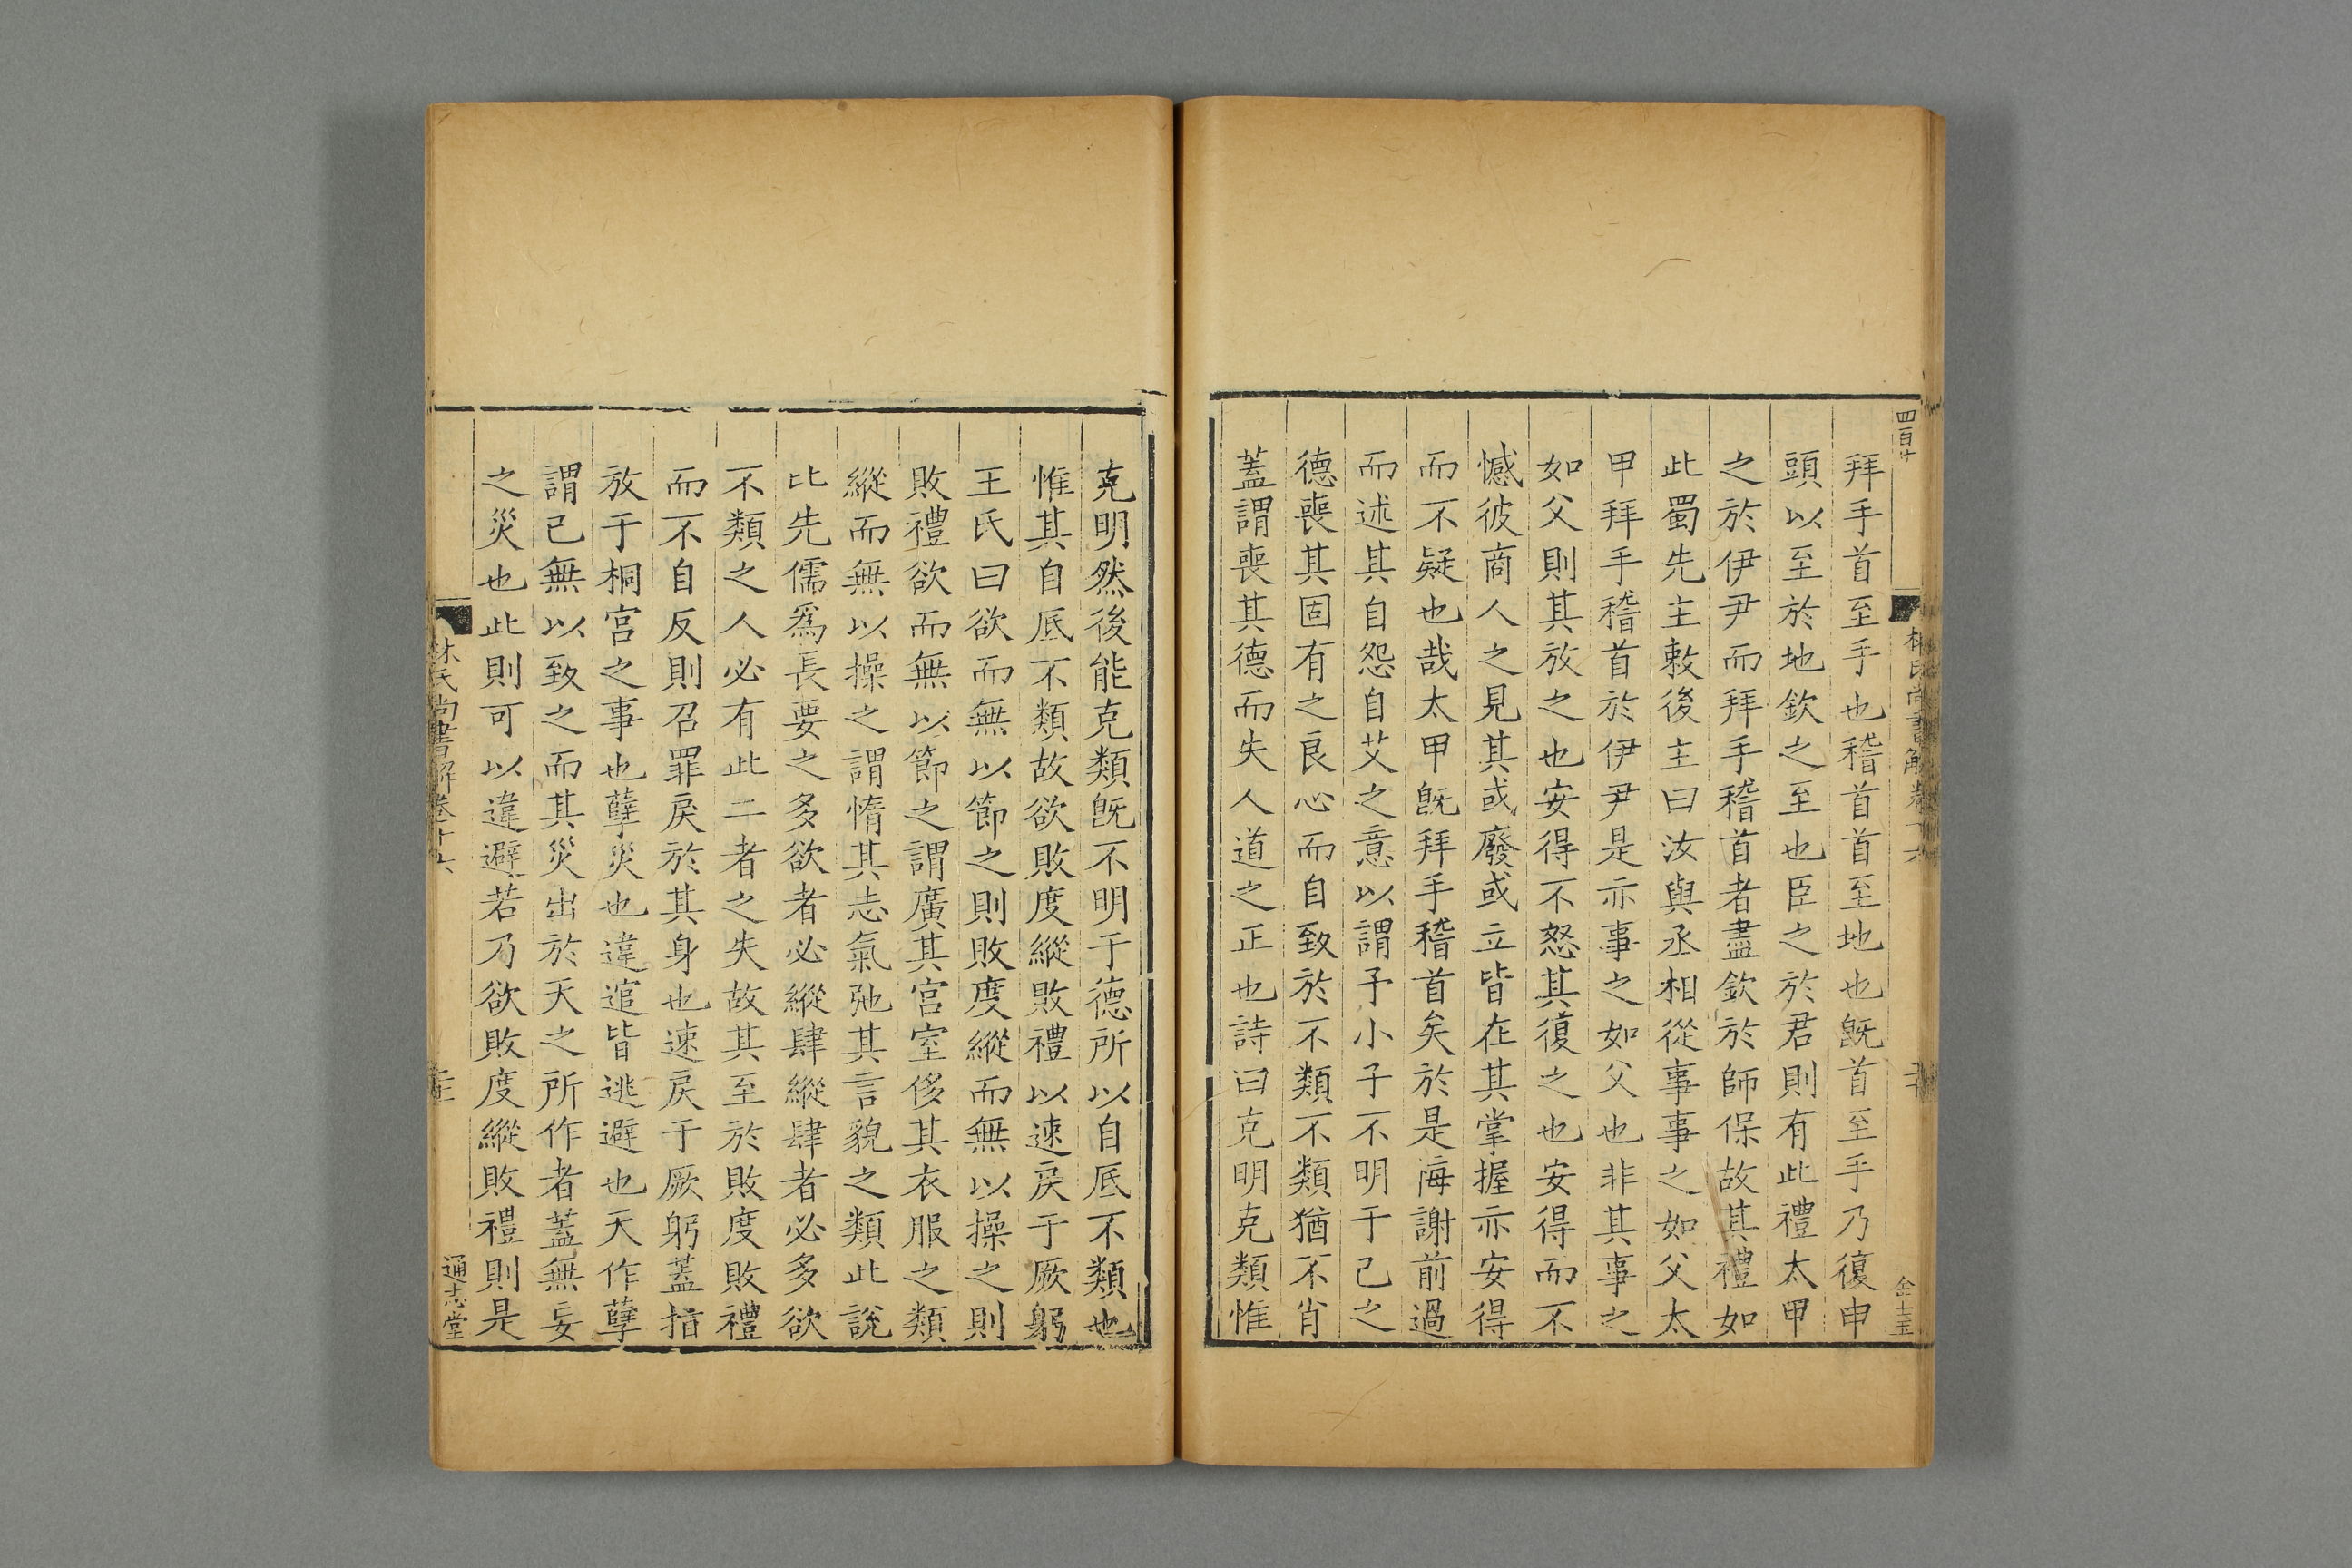 拜手首至手也稽首首至地也旣首至手乃復申
頭以至於地欽之至也臣之於君則有此禮太甲
之於伊尹而拜手稽首者盡欽於師保故其禮如
此蜀先主敕後主曰汝與丞相從事事之如父太
甲拜手稽首於伊尹是亦事之如父也非其事之
如父則其放之也安得不怒其復之也安得而不
憾彼商人之見其或廢或立皆在其掌握亦安得
而不疑也哉太甲旣拜手稽首矣於是悔謝前過
而述其自怨自艾之意以謂予小子不明于己之
德喪其固有之良心而自致於不類不類猶不肖
蓋謂喪其德而失人道之正也詩曰克明克類惟
克明然後能克類旣不明于德所以自厎不類也
惟其自厎不類故欲敗度縱敗禮以速戾于厥躬
王氏曰欲而無以節之則敗度縱而無以操之則
敗禮欲而無以節之謂廣其宮室侈其衣服之類
縱而無以操之謂惰其志氣弛其言貌之類此說
比先儒爲長要之多欲者必縱肆縱肆者必多欲
不類之人必有此二者之失故其至於敗度敗禮
而不自反則召罪戾於其身也速戾于厥躬蓋指
放于桐宮之事也孽災也違逭皆逃避也天作孽
謂已無以致之而其災出於天之所作者蓋無妄
之災也此則可以違避若乃欲敗度縱敗禮則是
林氏尚書解卷十六
通志堂